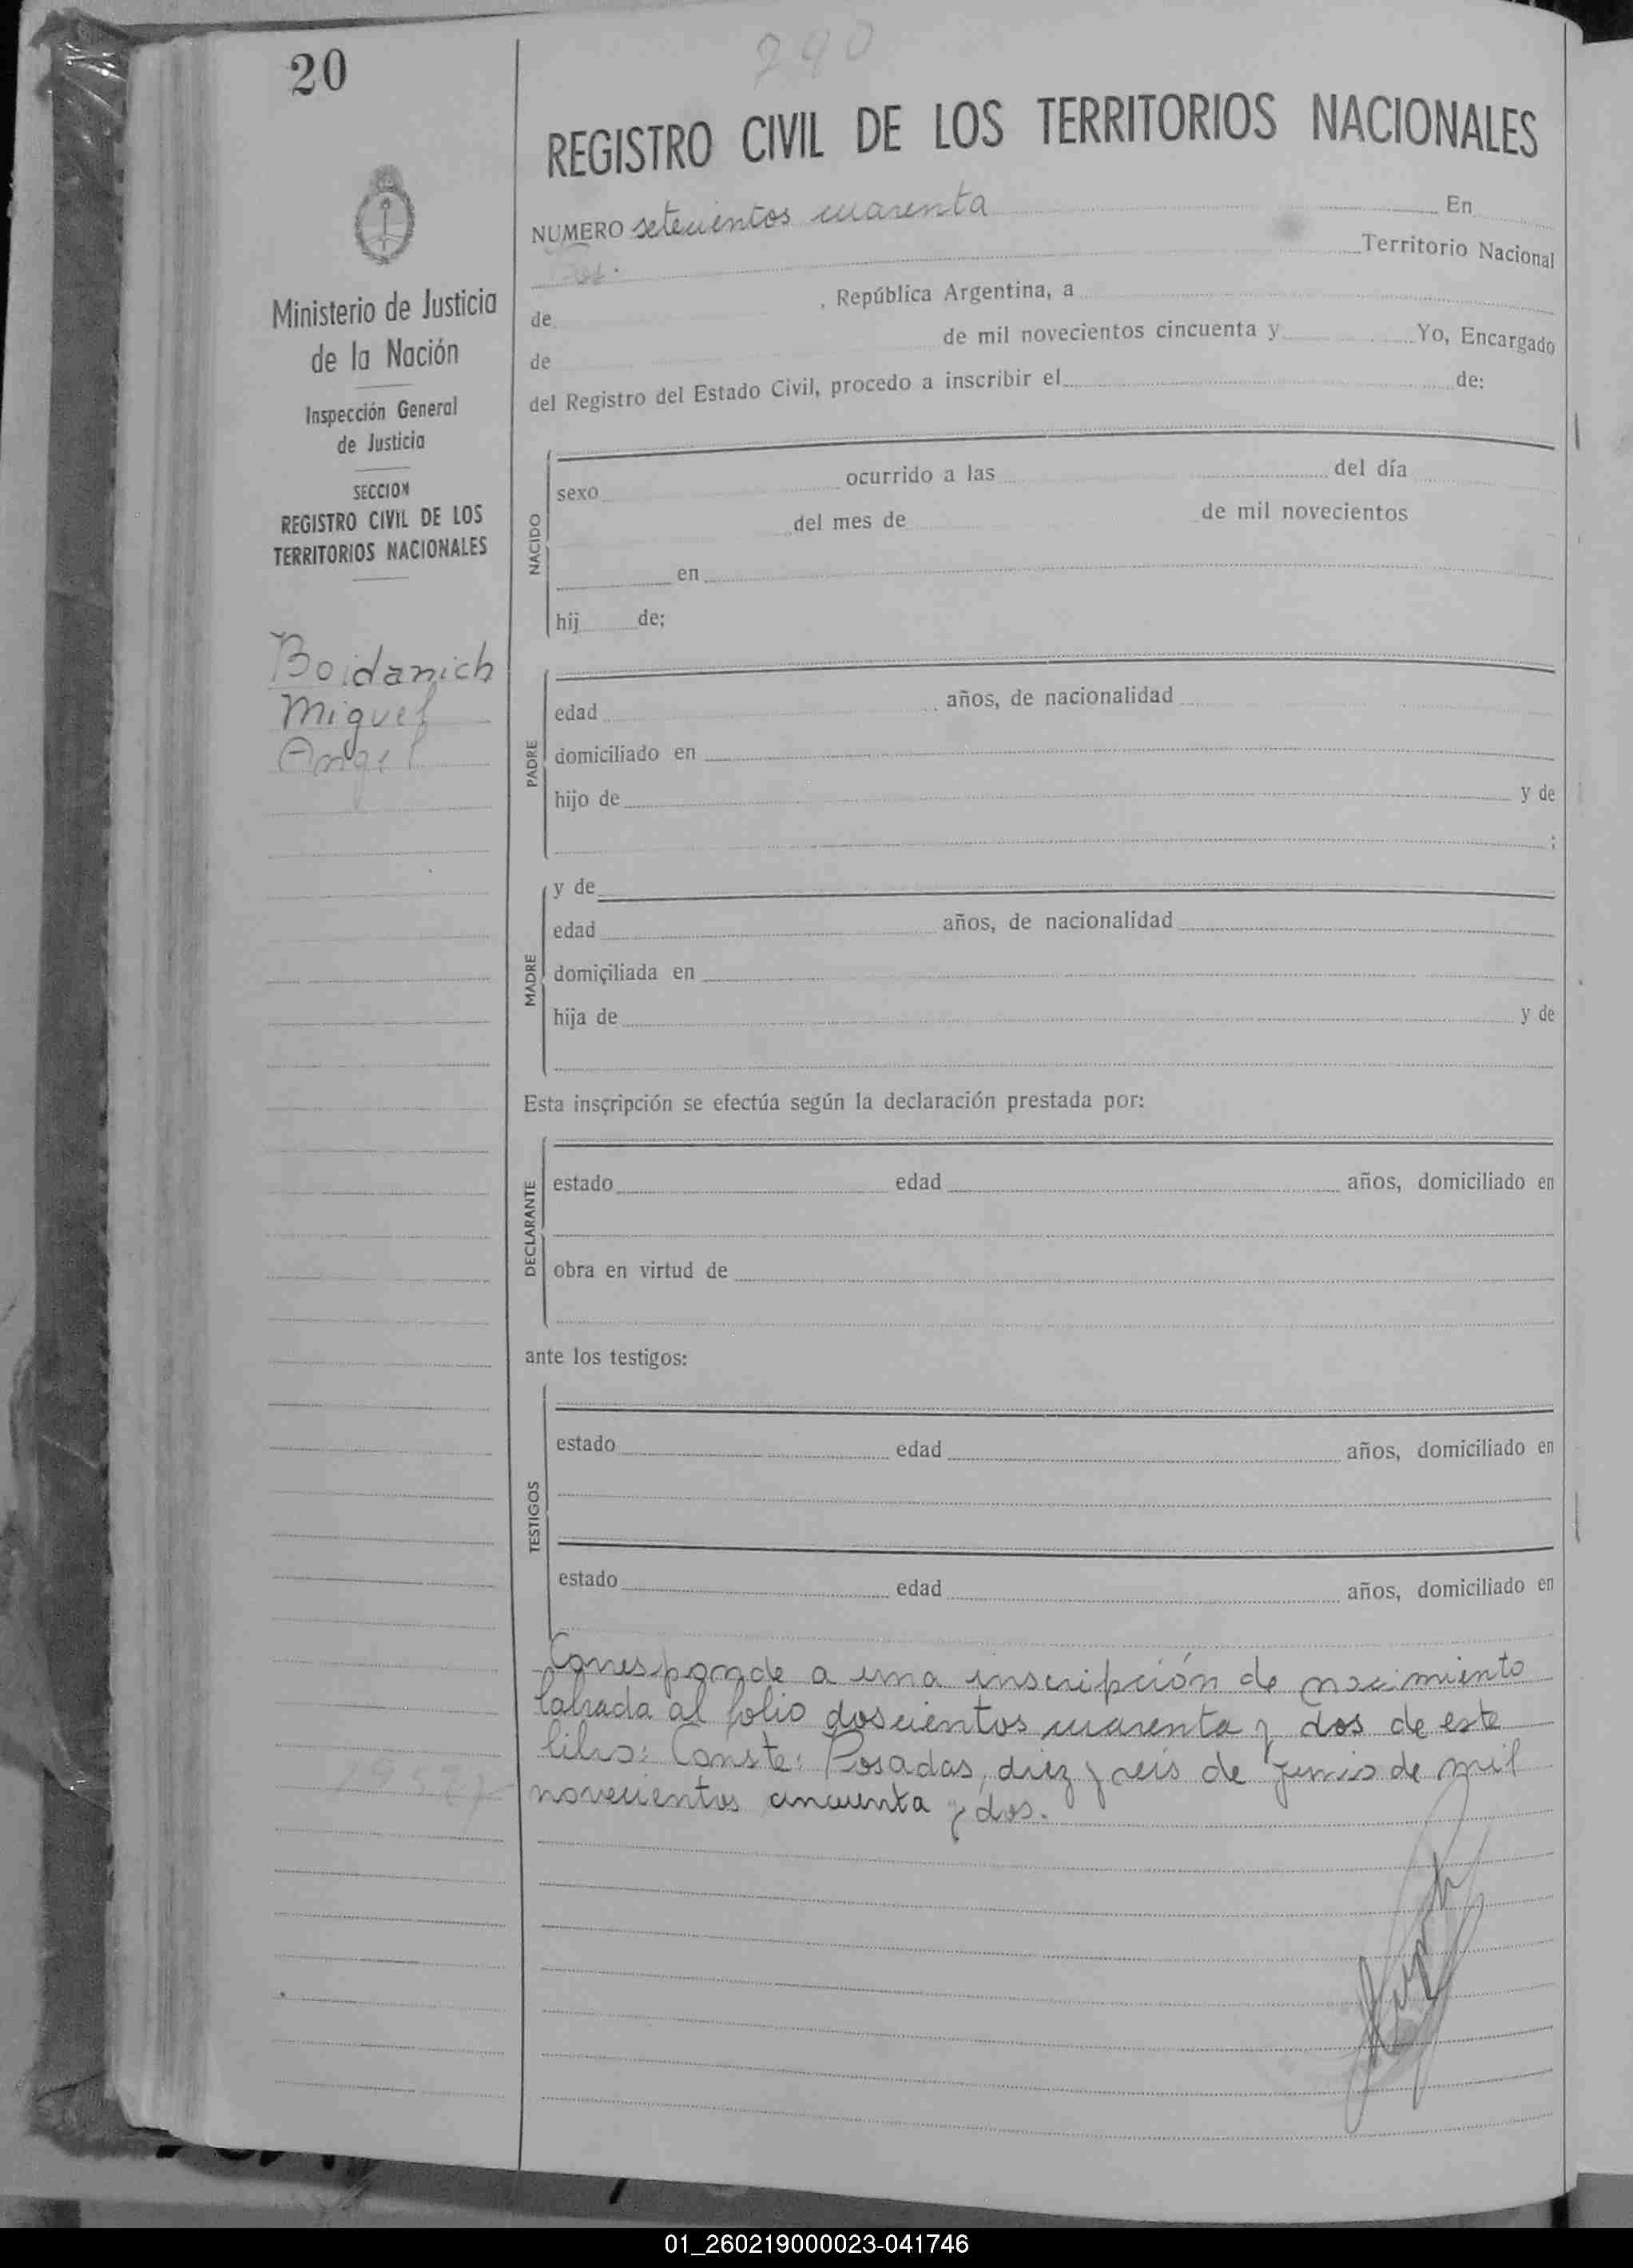 20
240
REGISTRO CIVIL DE LOS TERRITORIOS NACIONALES
NUMERO setecientos cuarenta En
Pos. Territorio Nacional
de , República Argentina, a
de de mil novecientos cincuenta y Yo, Encargado
del Registro del Estado Civil, procedo a inscribir el de:
Ministerio de Justicia
de la Nación
Inspección General
de Justicia
SECCION
REGISTRO CIVIL DE LOS
TERRITORIOS NACIONALES
Boidanich
Miguel
Angel
NACIDO
sexo ocurrido a las del día
del mes de de mil novecientos
en
hij de;
PADRE
edad años, de nacionalidad
domiciliado en
hijo de y de
;
MADRE
y de
edad años, de nacionalidad
domiciliada en
hija de y de
Esta inscripción se efectúa según la declaración prestada por:
DECLARANTE
estado edad años, domiciliado en
obra en virtud de
ante los testigos:
TESTIGOS
estado edad años, domiciliado en
estado edad años, domiciliado en
Corresponde a una inscripción de nacimiento
labrada al folio doscientos cuarenta y dos de este
libro: Conste: Posadas, diez y seis de junio de mil
novecientos cincuenta y dos.
01_260219000023-041746